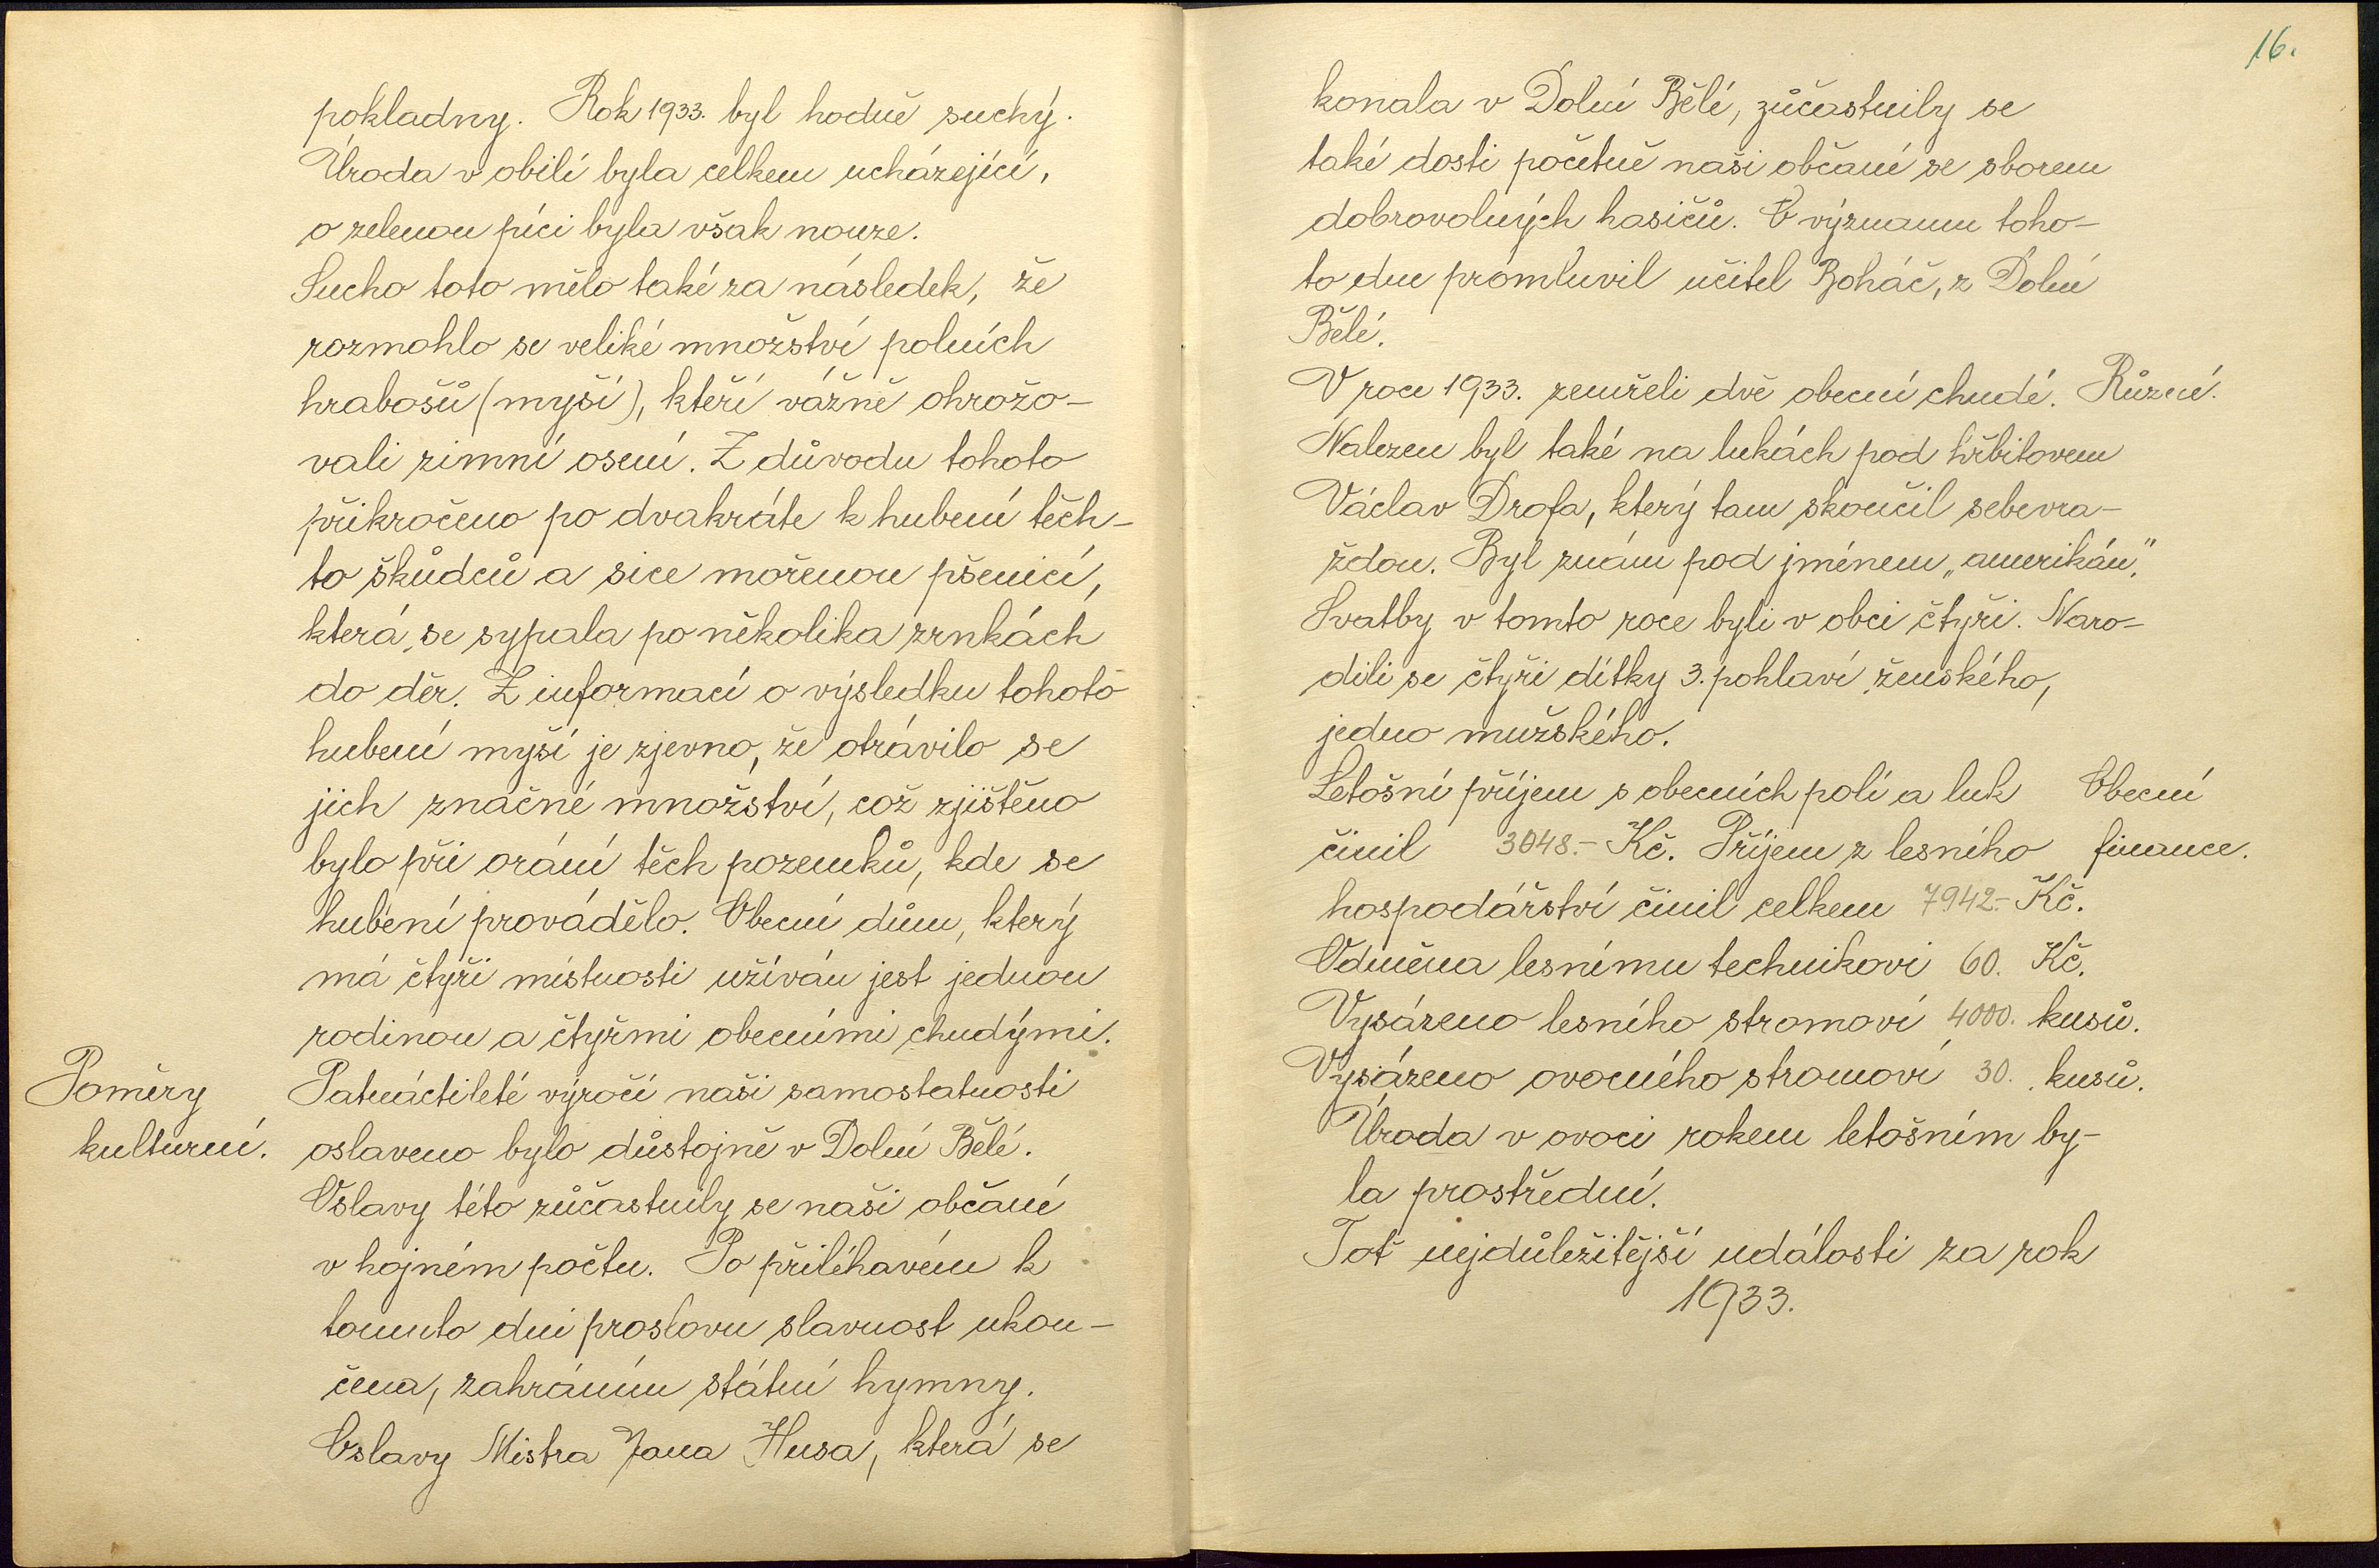 pokladny. Rok 1933. byl hodně suchý.
Úroda v obilí byla celkem ucházející,
o zelenou píci byla však nouze.
Sucho toto mělo také za následek, že
rozmohlo se veliké množství polních
hrabošů (myší), kteří vážně ohrožo-
vali zimní osení. Z důvodu tohoto
přikročeno po dvakráte k hubení těch-
to škůdců a sice mořenou pšenicí,
která se sypala po několika zrnkách
do děr. Z informací o výsledku tohoto
hubení myší je zjevno, že otrávilo se
jich značné množství, což zjištěno
bylo při orání těch pozemků, kde se
hubení provádělo. Obecní dům, který
má čtyři místnosti užíván jest jednou
rodinou a čtyřmi obecními chudými.
Poměry
kulturní.
Patnáctileté výročí naši samostatnosti
oslaveno bylo důstojně v Dolní Bělé.
Oslavy této zůčastnily se naši občané
v hojném počtu. Po přiléhavém k
tomuto dni proslovu slavnost ukon-
čena, zahráním státní hymny.
Oslavy Mistra Jana Husa, která se
16.
konala v Dolní Bělé, zůčastnily se
také dosti početně naši občané se sborem
dobrovolných hasičů. O významu toho-
to dne promluvil učitel Boháč, z Dolní
Bělé.
V roce 1933. zemřeli dvě obecní chudé. Různé.
Nalezen byl také na lukách pod hřbitovem
Václav Drofa, který tam skončil sebevra-
ždou. Byl znám pod jménem „amerikán".
Svatby v tomto roce byli v obci čtyři. Naro-
dili se čtyři dítky 3. pohlaví ženského,
jedno mužského.
Letošní příjem s obecních polí a luk Obecní
činil 3048.- Kč. Příjem z lesního finance.
hospodářství činil celkem 7942.- Kč.
Odměna lesnímu technikovi 60. Kč.
Vysázeno lesního stromoví 4000. kusů.
Vysázeno ovocného stromoví 30. kusů.
Úroda v ovoci rokem letošním by-
la prostřední.
Toť nejdůležitější události za rok
1933.